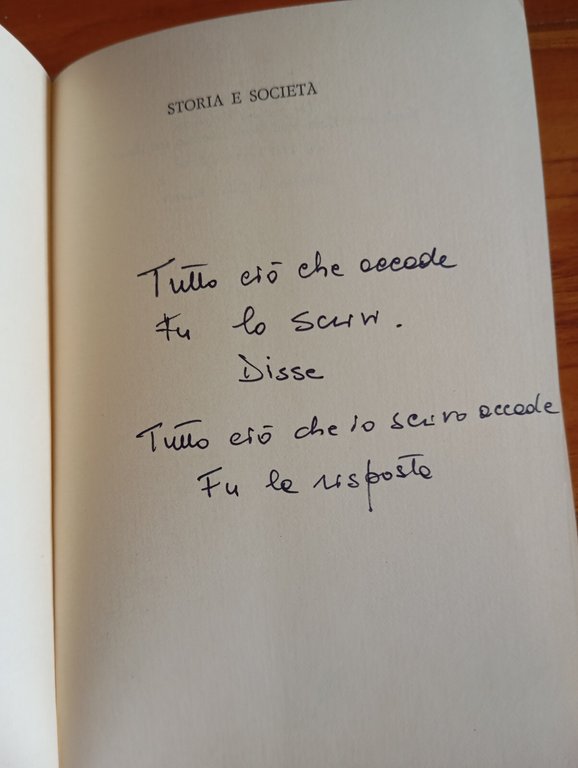 STORIA E SOCIETÀ
Tutto ciò che accade
Tu lo scrivi.
Disse
Tutto ciò che io scrivo accade
Fu la risposta